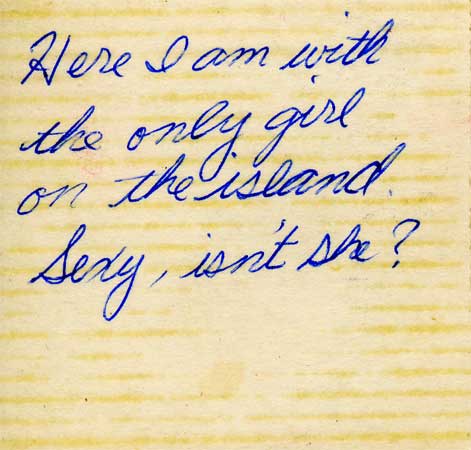 Here I am with
the only girl
on the island.
Sexy, isn't she?